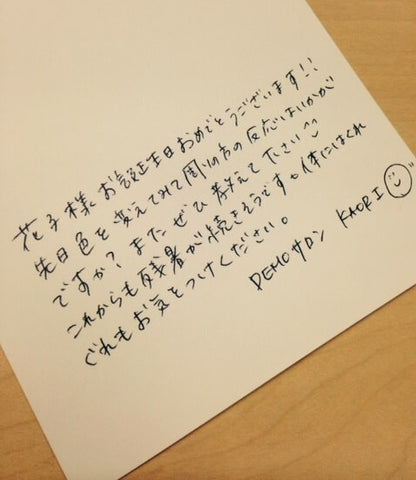 花子様 お誕生日おめでとうございます!!
先日色を変えてみて周りの方の反応はいかが
ですか?またぜひ教えて下さい^^
これからも残暑が続きそうです。体にはくれ
ぐれもお気をつけください。
DEMOサロン KAORI